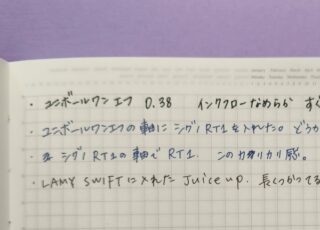 ・ユニボールワン エフ 0.38 インクフローなめらか
・ユニボールワンエフの軸にシグノRT1を入れた。どうか
・シグノRT1の軸でRT1. このカリカリ感。
・LAMY SWIFTに入れたJuice up. 長くつかってる